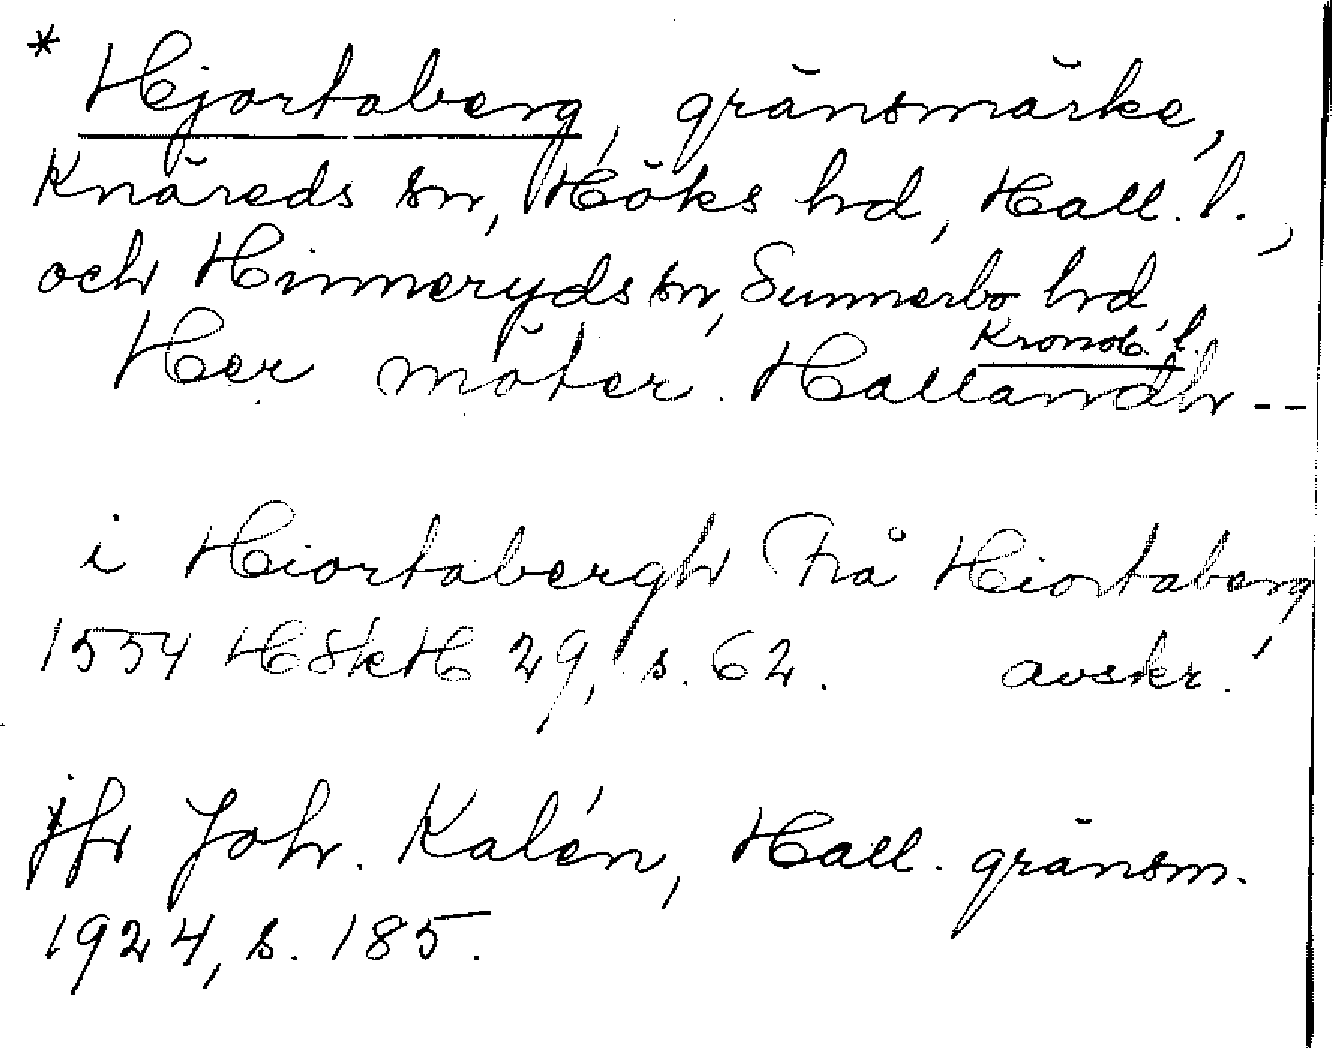 * Hjortaberg, gränsmärke,
Knäreds sn, Höks hd, Hall. l.,
och Hinneryds sn, Sunnerbo hd
Kronob. l.
Her möter Hallandh --
i Hiortabergh Frå Hiortaberg
1554 HSkH 29, s. 62. avskr.
jfr Joh. Kalén, Hall. gränsm.
1924, s. 185.